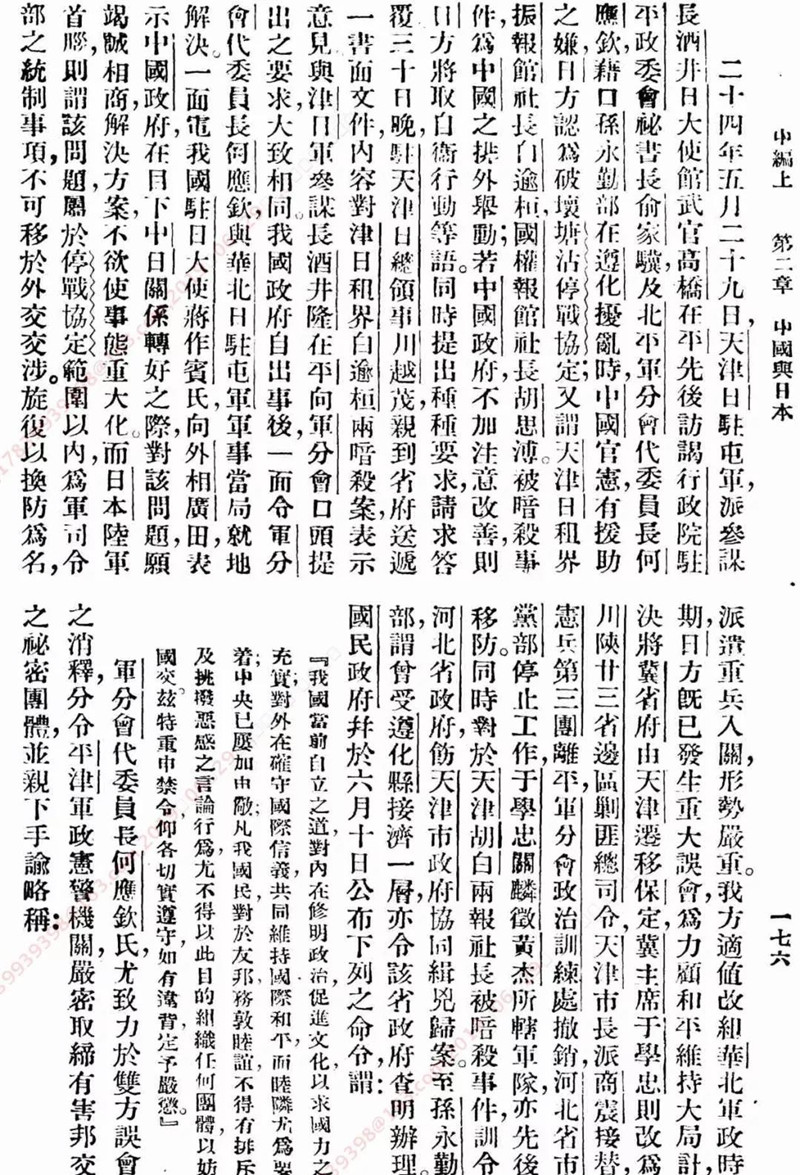 中編上　第二章　中國與日本　一七六
二十四年五月二十九日，天津日駐屯軍，派參謀
長酒井日大使館武官高橋在平先後訪謁行政院駐
平政委會祕書長俞家驥，及北平軍分會代委員長何
應欽，藉口孫永勤部在遵化擾亂時，中國官憲有援助
之嫌，日方認爲破壞塘沽停戰協定；又謂天津日租界
振報館社長白逾桓，國權報館社長胡思溥，被暗殺事
件，爲中國之排外舉動；若中國政府不加注意改善，則
日方將取自衞行動等語。同時提出種種要求，請求答
覆。三十日晚，駐天津日總領事川越茂親到省府送遞
一書面文件，內容對津日租界白逾桓兩暗殺案，表示
意見與津日軍參謀長酒井隆在平向軍分會口頭提
出之要求大致相同。我國政府自出事後，一面令軍分
會代委員長何應欽與華北日駐屯軍軍事當局就地
解決。一面電我國駐日大使蔣作賓氏向外相廣田表
示中國政府，在目下中日關係轉好之際，對該問題，願
竭誠相商解決方案，不欲使事態重大化。而日本陸軍
首腦，則謂該問題屬於停戰協定範圍以內，爲軍司令
部之統制事項，不可移於外交交涉。旋復以換防爲名，
派遣重兵入關，形勢嚴重。我方適值改組華北軍政時
期，日方旣已發生重大誤會，爲力顧和平維持大局計，
決將冀省府由天津遷移保定，冀主席于學忠則改爲
川陝甘三省邊區剿匪總司令，天津市長派商震接替，
憲兵第三團離平，軍分會政治訓練處撤銷，河北省市
黨部停止工作，于學忠關麟徵黃杰所轄軍隊，亦先後
移防。同時對於天津胡白兩報社長被暗殺事件，訓令
河北省政府，飭天津市政府協同緝兇歸案。至孫永勤
部，謂曾受遵化縣接濟一層，亦令該省政府查明辦理。
國民政府幷於六月十日公布下列之命令，謂：
『我國當前自立之道，對內在修明政治，促進文化，以求國力之
充實；對外在確守國際信義，共同維持國際和平，而睦隣尤爲要
着；中央已屢加申儆，凡我國民對於友邦，務敦睦誼，不得有排斥
及挑撥惡感之言論行爲，尤不得以此目的，組織任何團體，以妨
國交。茲特重申禁令，仰各切實遵守，如有違背，定予嚴懲。』
軍分會代委員長何應欽氏，尤致力於雙方誤會
之消釋，分令平津軍政憲警機關，嚴密取締有害邦交
之祕密團體，並親下手諭，略稱：